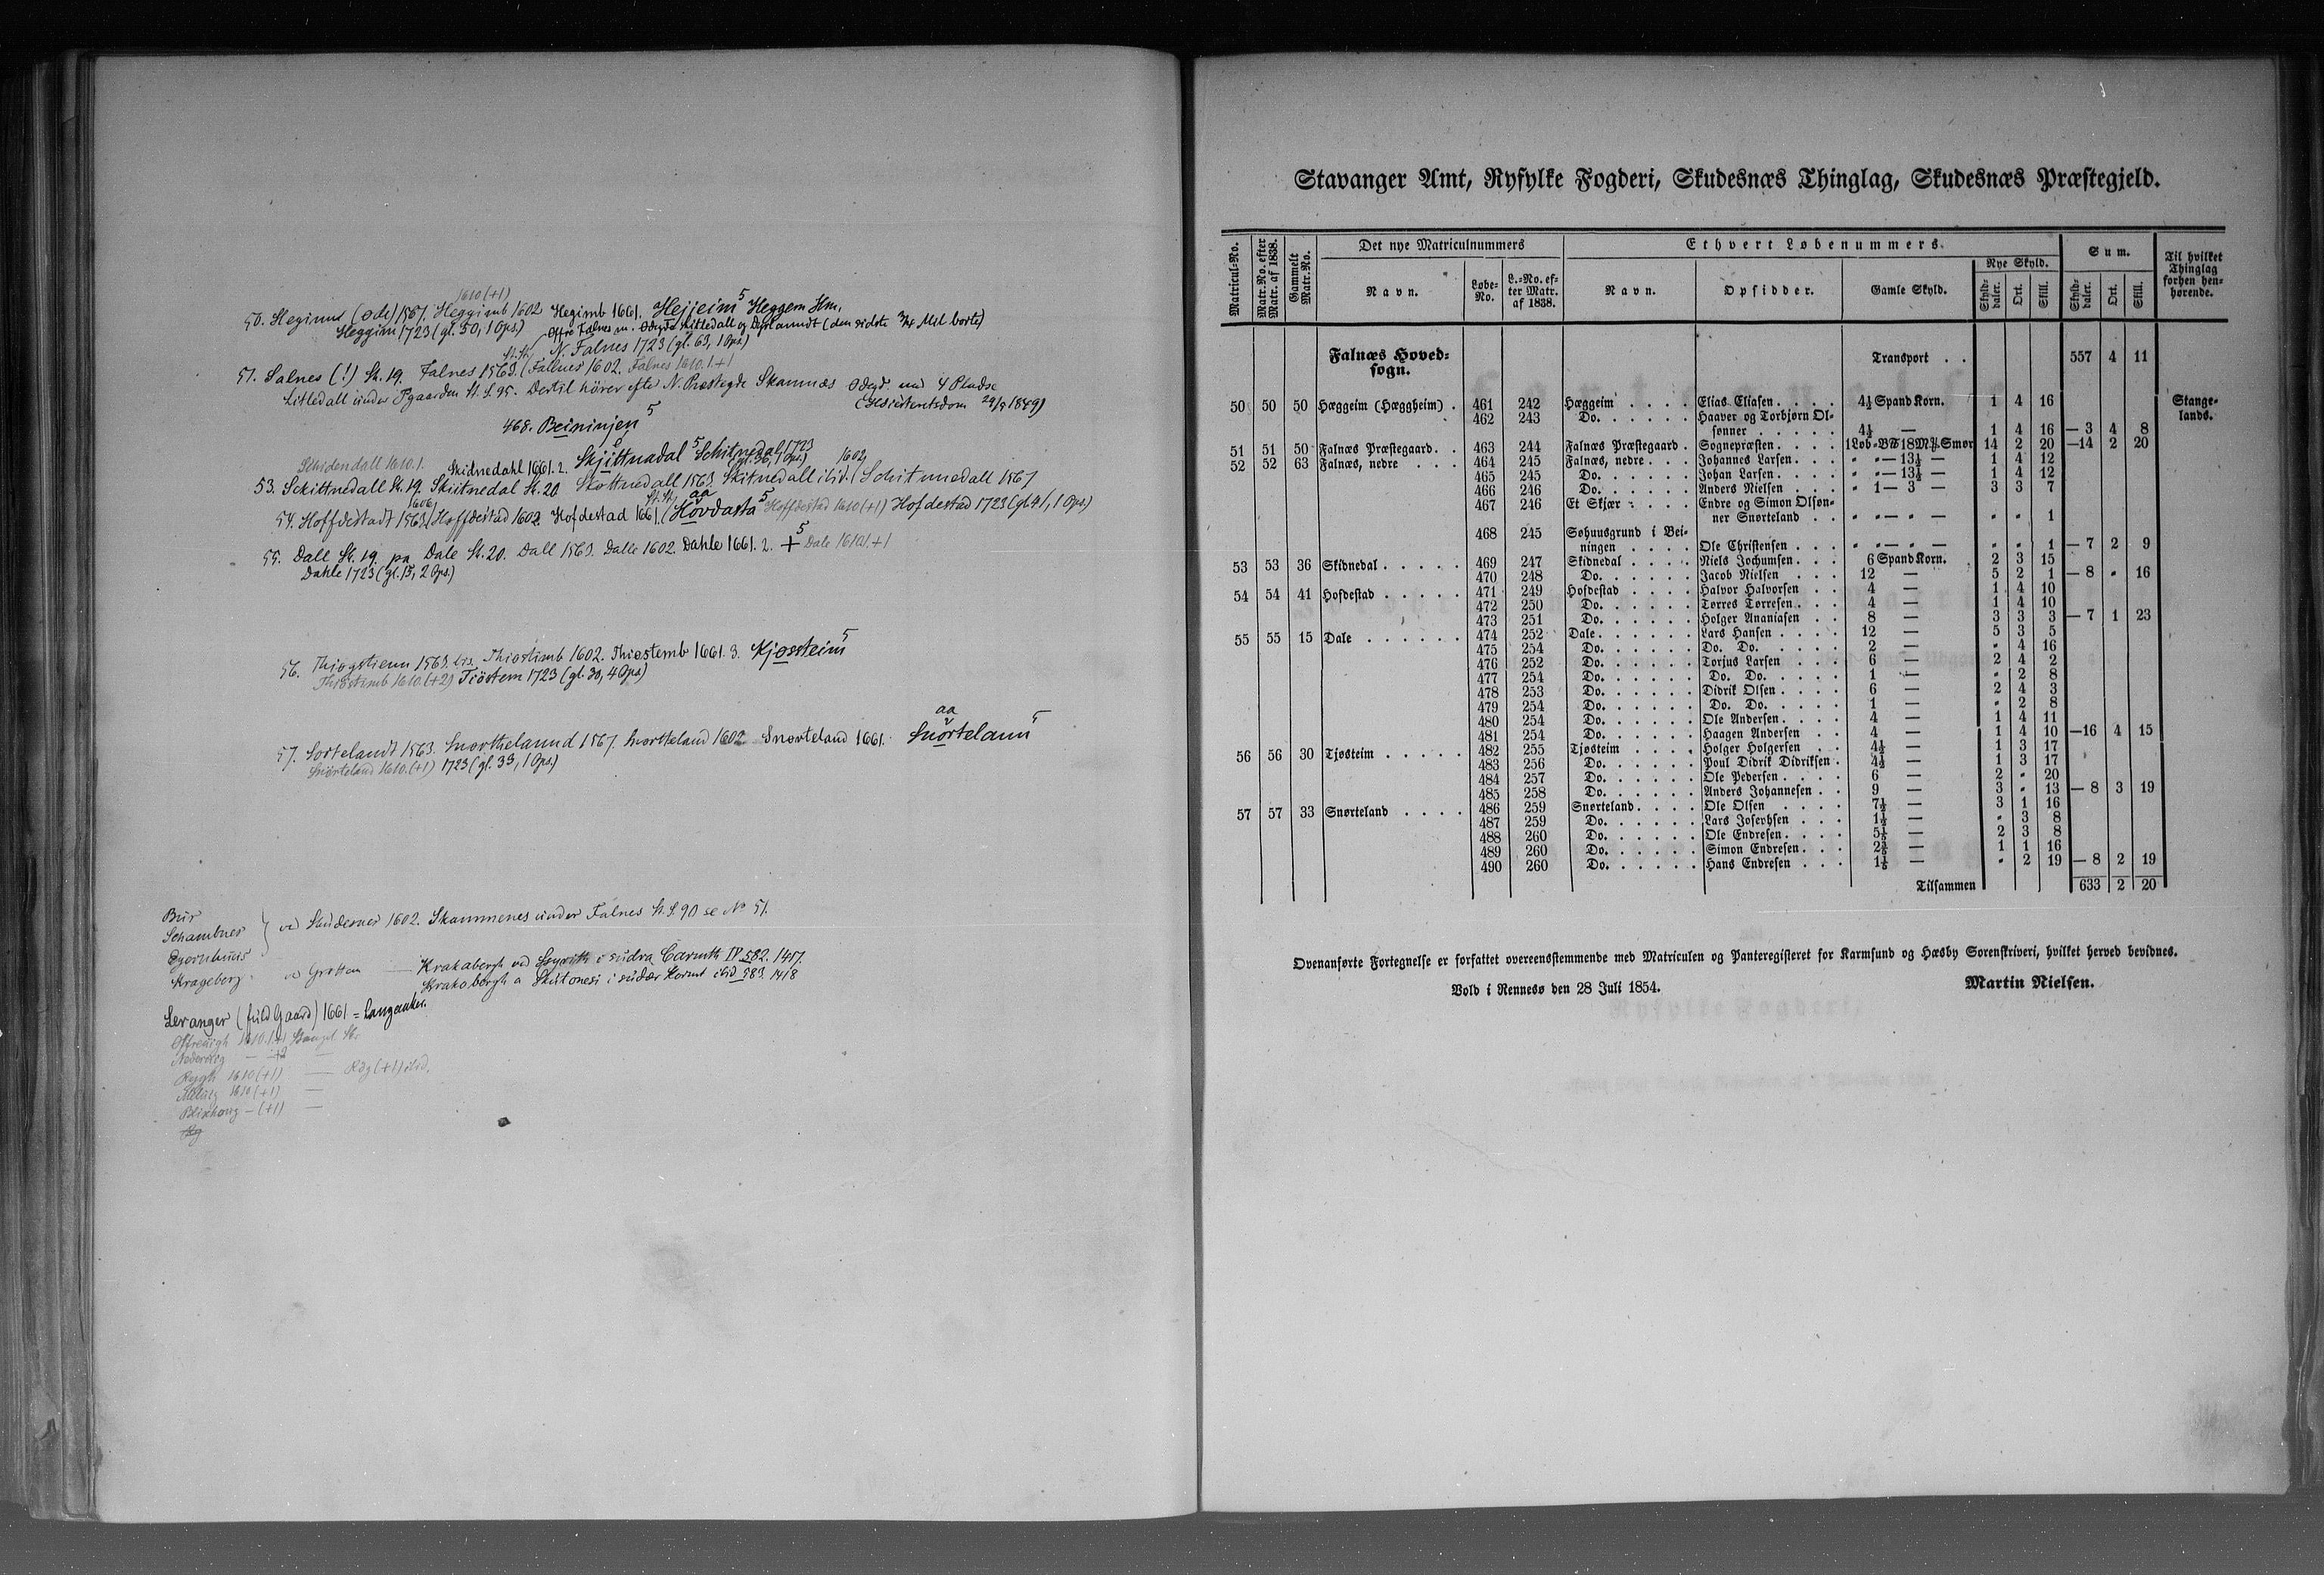 1610 (+1)
50. Hegimu (øde) 1567. Heggimb 1602. Hegimb 1661. Hejjeim 5 Heggem Hm.
Heggim 1723 (gl. 50, 1 Ops.)
N. Falnes 1723 (gl. 63, 1 Ops.)
51. Salnes (!) St. 19. Falnes 1563. (Fallnes 1602. Falnes 1610. 1+1
Litledall under Pgaarden St. S. 95. Dertil hörer efter N. Præstegde Skamnæs Ødegd. med 4 Pladse
(Höiesteretsdom 29/9 1849)
468. Beininjen 5
Schidendall 1610. 1. Skidnedahl 1661. 2. Skjittnadal 5 Schitnedal 1723
(gl. 36, 1 Ops.) 1602
53. Sckittnedall St. 19. Skiitnedal St. 20 Skottnedall 1563. Skitnedall ibid. (Schitnnedall 1567
54. Hoffdestadt 1563 (Hoffdestad 1602. Hofdestad 1661. (Hovdasta 5 Hoffdestad 1610 (+1) Hofdestad 1723 (gl. 41, 1 Ops)
55. Dall St. 19. pa Dale St. 20. Dall 1563. Dalle 1602. Dahle 1661. 2. + 5 Dale 1610. 1+1
Dahle 1723 (gl. 15, 2 Ops.)
56. Thiogstienn 1563. bis. Thiostimb 1602. Thiøstemb 1661. 3. Kjøssteim 5
Thiöstemb 1610. (+2) Tiöstem 1723 (gl. 30, 4 Ops)
aa
57. Sortelandt 1563. Snorthelannd 1567. Snortheland 1602. Snorteland 1661. Snortelann 5
Snörteland 1610. (+1) 1723 (gl. 33, 1 Ops.)
Bur
Schambnes
ved Skudesnes 1602. Skammenes under Falnes St. S. 90 se No 51.
Krageberg
Krakabergh ved Søyrith i sudra Carmth IV 582. 1417.
Krakabergh a Skutonesi i sudær Kormt ibid 583. 1418
Leranger (fuld Gaard) 1661 = Langaaker.
Ryegh 1610 (+1) —
Stavanger Amt, Ryfylke Fogderi, Skudesnæs Thinglag, Skudesnæs Præstegjeld.
Matricul-No. Matr.No. efter Matr. af 1838. Gammelt Matr.No. Det nye Matriculnummers Ethvert Løbenummers Sum. Til hvilket Thinglag forhen henhørende.
Navn. Løbe-No. L.-No. efter Matr. af 1838. Navn. Opsidder. Gamle Skyld. Nye Skyld. Skylddaler. Ort. Skill. Skylddaler. Ort. Skill.
Falnæs Hovedsogn. Transport . . 557 4 11
50 50 50 Hæggeim (Hæggheim) . 461 242 Hæggeim . . . . Elias Eliasen . . . . 4½ Spand Korn. 1 4 16 Stangelands.
462 243 Do. . . . . . . Haaver og Torbjørn Ol-
sønner . . . . . 4½ — 1 4 16 — 3 4 8
51 51 50 Falnæs Præstegaard. . 463 244 Falnæs Præstegaard . Sognepræsten . . . . 1 Løb - B℔ 18 M℔. Smør 14 2 20 —14 2 20
52 52 63 Falnæs, nedre . . . 464 245 Falnæs, nedre . . . Johannes Larsen . . . " " — 13½ — 1 4 12
465 245 Do. . . . . . . Johan Larsen . . . . " " — 13½ — 1 4 12
466 246 Do. . . . . . . Anders Nielsen . . . " 1 — 3 — 3 3 7
467 246 Et Skjær . . . . Endre og Simon Olsøn-
ner Snørteland . . " " — " — " " 1
468 245 Søhuusgrund i Bei-
ningen . . . . Ole Christensen . . . " " — " — " " 1 — 7 2 9
53 53 36 Skidnedal . . . . . 469 247 Skidnedal . . . . Niels Jochumsen . . . 6 Spand Korn. 2 3 15
470 248 Do. . . . . . . Jacob Nielsen . . . 12 — 5 2 1 — 8 " 16
54 54 41 Hofdestad . . . . . 471 249 Hofdestad . . . . Halvor Halvorsen . . 4 — 1 4 10
472 250 Do. . . . . . . Tørres Tørresen . . . 4 — 1 4 10
473 251 Do. . . . . . . Holger Ananiasen . . 8 — 3 3 3 — 7 1 23
55 55 15 Dale . . . . . . 474 252 Dale . . . . . . Lars Hansen . . . . 12 — 5 3 5
475 254 Do. . . . . . . Do. Do. . . . . . 2 — " 4 16
476 252 Do. . . . . . . Torjus Larsen . . . 6 — 2 4 2
477 254 Do. . . . . . . Do. Do. . . . . . 1 — " 2 8
478 253 Do. . . . . . . Didrik Olsen . . . . 6 — 2 4 3
479 254 Do. . . . . . . Do. Do. . . . . . 1 — " 2 8
480 254 Do. . . . . . . Ole Andersen . . . . 4 — 1 4 11
481 254 Do. . . . . . . Haagen Andersen . . 4 — 1 4 10 —16 4 15
56 56 30 Tjøsteim . . . . . 482 255 Tjøsteim . . . . Holger Holgersen . . 4½ — 1 3 17
483 256 Do. . . . . . . Poul Didrik Didriksen . 4½ — 1 3 17
484 257 Do. . . . . . . Ole Pedersen . . . . 6 — 2 " 20
485 258 Do. . . . . . . Anders Johannesen . . 9 — 3 " 13 — 8 3 19
57 57 33 Snørteland . . . . 486 259 Snørteland . . . . Ole Olsen . . . . 7½ — 3 1 16
487 259 Do. . . . . . . Lars Josephsen . . . 1½ — " 3 8
488 260 Do. . . . . . . Ole Endresen . . . . 5¼ — 2 3 8
489 260 Do. . . . . . . Simon Endresen . . . — 1 1 16
490 260 Do. . . . . . . Hans Endresen . . . — " 2 19 — 8 2 19
Tilsammen 633 2 20
Ovenanførte Fortegnelse er forfattet overeensstemmende med Matriculen og Panteregisteret for Karmsund og Hæsby Sorenskriveri, hvilket herved bevidnes.
Vold i Rennesø den 28 Juli 1854. Martin Nielsen.